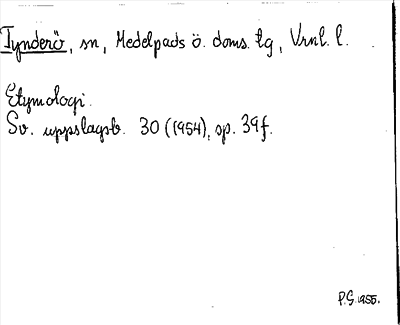 Tynderö, sn, Medelpads ö. doms. tg, Vrnl. l.
Etymologi.
Sv. uppslagsb. 30 (1954), sp. 39f.
P.G. 1955.